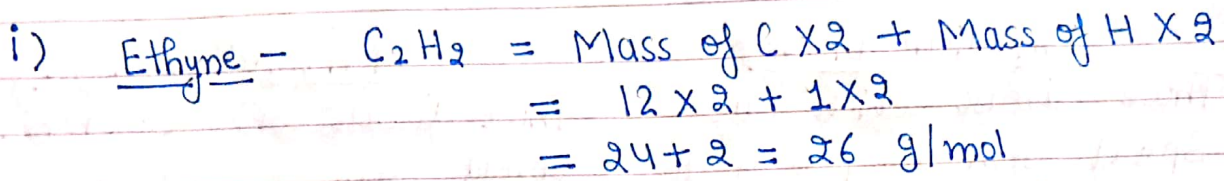 i) Ethyne - C2H2 = Mass of C X2 + Mass of H X 2
= 12 X 2 + 1X2
= 24+ 2 = 26 g/mol